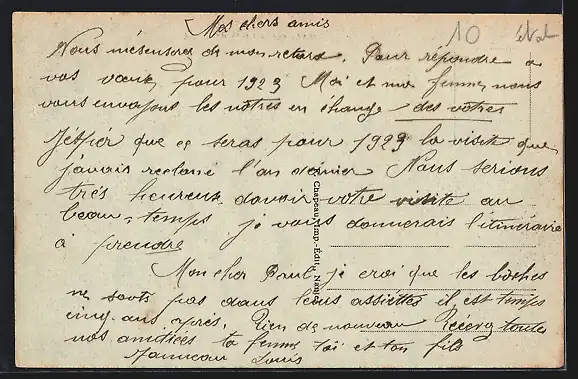 Mes chers amis
10
Nous m'escuserez de mon retard. Pour répondre a
vos vœux pour 1923 Moi et ma femme nous
vous envoyons les notres en échange des votres
J'espér que ce seras pour 1923 la visite que
j'avais reclamé l'an dernier Nous serions
trés heureux davoir votre visite au
beau-temps je vous donnerais l'itinéraire
à prendre
Mon cher Paul je croi que les boches
ne sonts pas dans leurs assiettes il est temps
cinq ans aprés. Rien de nouveau Recevez toutes
nos amitiées ta femme toi et ton fils
Louis
Chapeau, Imp.-Édit., Nantes